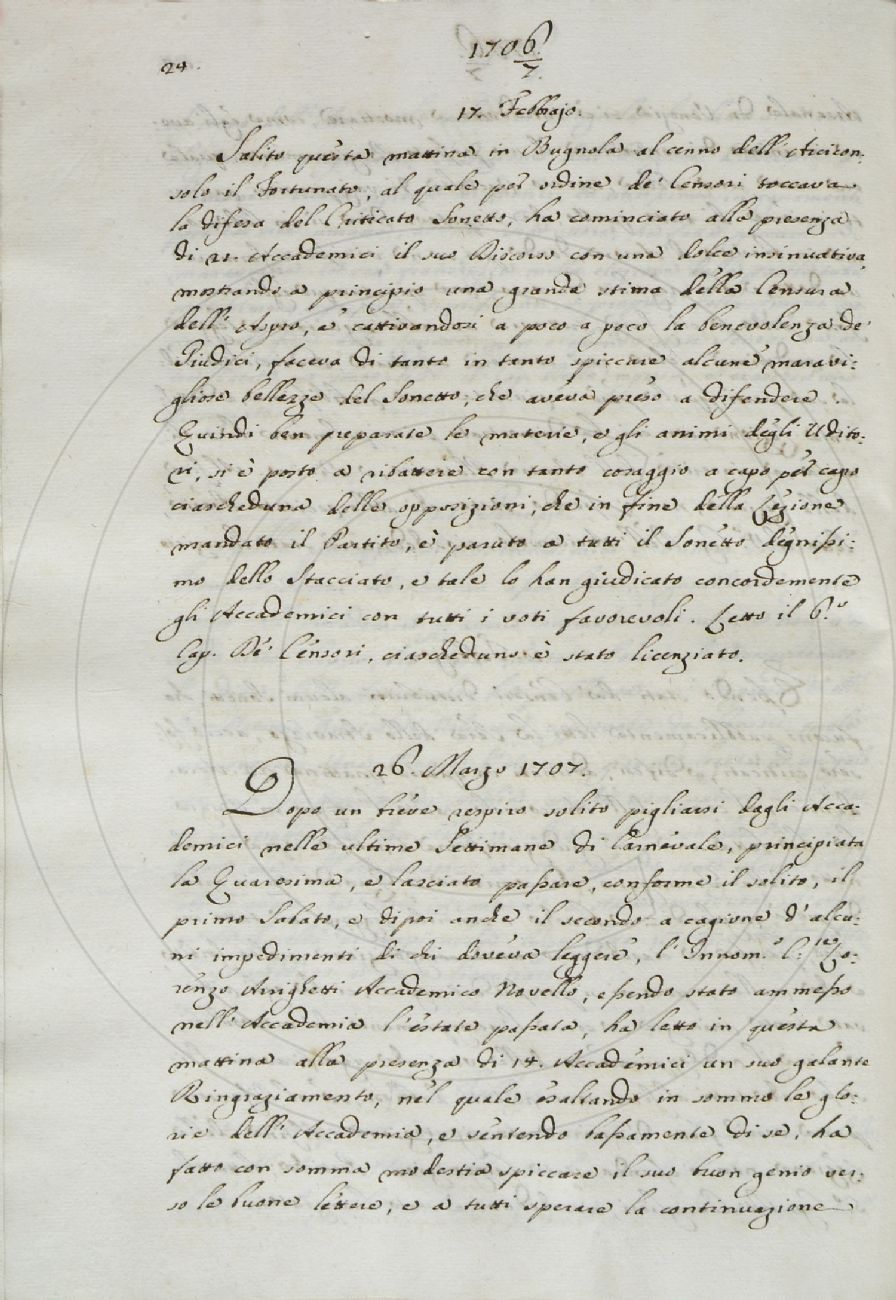 24.
1706/7.
17. Febbrajo.
Salito questa mattina in Bugnola al cenno dell'Arcicon:
solo il Fortunato, al quale per ordine de' Censori toccava
la difesa del Criticato Sonetto, ha cominciato alla presenza
di 21. Accademici il suo Discorso con una dolce insinuativa
mostrando a principio una grande stima della Censura
dell'Aspro, e cattivandosi a poco a poco la benevolenza de'
Giudici, faceva di tanto in tanto spiccare alcune maravi:
gliose bellezze del Sonetto, che aveva preso a difendere.
Quindi ben preparate le materie, e gli animi degli Udito:
ri, si è posto a ribattere con tanto coraggio a capo per capo
ciascheduna delle opposizioni, che in fine della Lezione
mandato il Partito, è paruto a tutti il Sonetto degnissi:
mo dello Stacciato, e tale lo han giudicato concordemente
gli Accademici con tutti i voti favorevoli. Letto il 6.º
Cap. De' Censori, ciascheduno è stato licenziato.
26. Marzo 1707.
Dopo un breve respiro solito pigliarsi dagli Acca:
demici nelle ultime Settimane di Carnevale, principiata
la Quaresima, e lasciato passare, conforme il solito, il
primo Sabato, e dipoi anche il secondo a cagione d'alcu:
ni impedimenti di chi doveva leggere, l'Innom.º C.re Lo:
renzo Arrighetti Accademico Novello, essendo stato ammesso
nell'Accademia l'estate passata, ha letto in questa
mattina alla presenza di 14. Accademici un suo galante
Ringraziamento, nel quale esaltando in sommo le glo:
rie dell'Accademia, e sentendo bassamente di se, ha
fatto con somma modestia spiccare il suo buon genio ver:
so le buone lettere, e a tutti sperare la continuazione